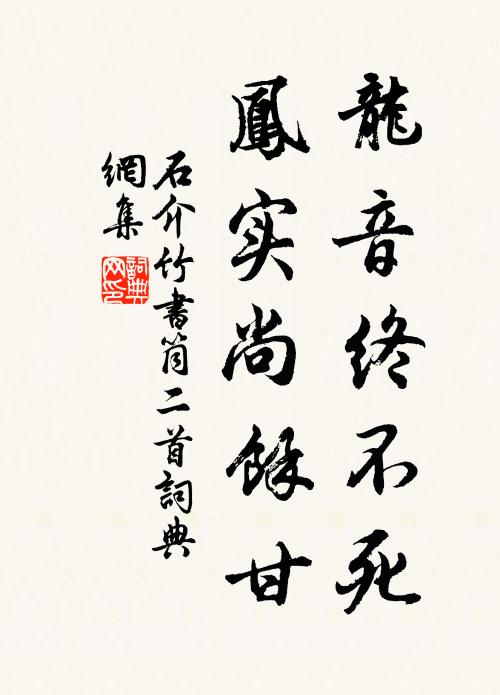 龍音終不死
鳳实尚餘甘
石介竹書筒二首詞典
網集
詞典網印